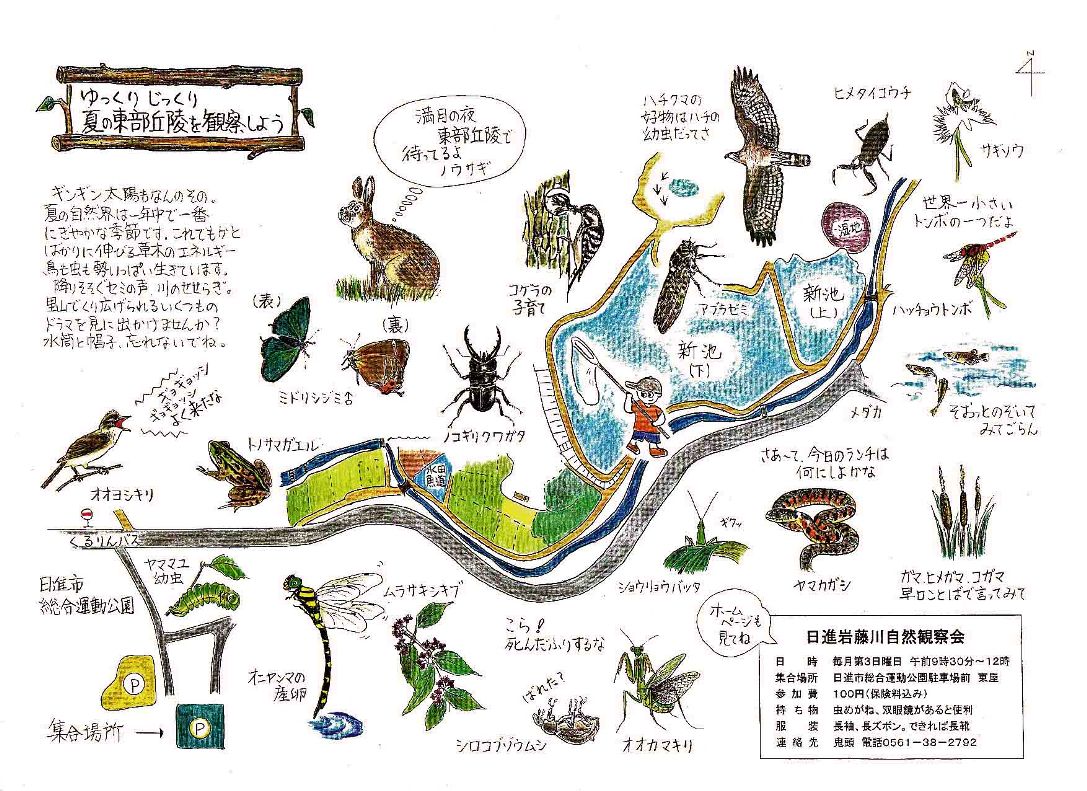 ゆっくり じっくり
夏の東部丘陵を観察しよう
満月の夜
東部丘陵で
待ってるよ
ノウサギ
ハチクマの
好物はハチの
幼虫だってさ
ヒメタイコウチ
サギソウ
N
ギンギン太陽もなんのその。
夏の自然界は一年中で一番
にぎやかな季節です。これでもかと
ばかりに伸びる草木のエネルギー
鳥も虫も勢いっぱい生きています。
降りそそぐセミの声 川のせせらぎ。
里山でくり広げられるいくつもの
ドラマを見に出かけませんか?
水筒と帽子、忘れないでね。
(表)
(裏)
ミドリシジミ♂
コゲラの
子育て
アブラゼミ
湿地
新池
(上)
新池
(下)
世界一小さい
トンボの一つだよ
ハッチョウトンボ
メダカ
そおっとのぞいて
みてごらん
ギョギョッシ
ギョギョッシ
よく来たな
オオヨシキリ
トノサマガエル
ノコギリクワガタ
水田
魚道
さあ〜て、今日のランチは
何にしよかな
ヤマカガシ
ギクッ
ショウリョウバッタ
ガマ、ヒメガマ、コガマ
早口ことばで言ってみて
くるりんバス
日進市
総合運動公園
ヤママユ
幼虫
P
P
集合場所 →
オニヤンマの
産卵
ムラサキシキブ
こら!
死んだふりするな
ばれた?
シロコブゾウムシ
オオカマキリ
ホーム
ページも
見てね
日進岩藤川自然観察会
日 時 毎月第3日曜日 午前9時30分〜12時
集合場所 日進市総合運動公園駐車場前 東屋
参加費 100円(保険料込み)
持ち物 虫めがね、双眼鏡があると便利
服 装 長袖、長ズボン。できれば長靴
連絡先 鬼頭 電話0561-38-2792